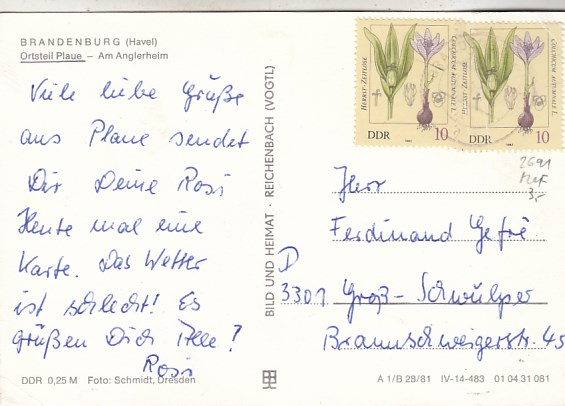 BRANDENBURG (Havel)
Ortsteil Plaue – Am Anglerheim
Viele liebe Grüße
aus Plaue sendet
Dir Deine Rosi
Heute mal eine
Karte. Das Wetter
ist schlecht! Es
grüßen Dich Alle!
Rosi
DDR 0,25 M Foto: Schmidt, Dresden
BILD UND HEIMAT · REICHENBACH (VOGTL)
HERBST-ZEITLOSE
COLCHICUM AUTUMNALE L.
DDR 10
1982
HERBST-ZEITLOSE
COLCHICUM AUTUMNALE L.
DDR 10
1982
2691
MeF
3,-
Herr
Ferdinand
D
3301 Groß-Schwülper
Braunschweigerstr. 45
A 1/B 28/81 IV-14-483 01 04 31 081